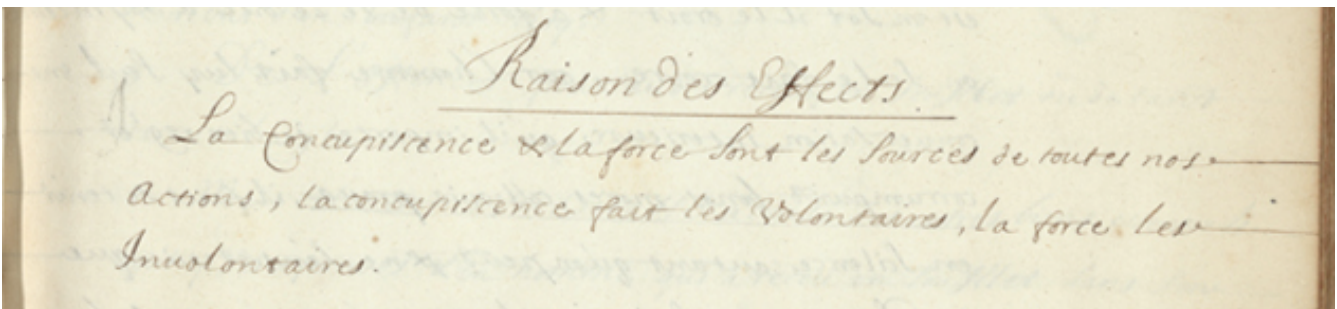 Raison des Effects.
La Concupiscence & la force sont les sources de toutes nos
Actions, la concupiscence fait les Volontaires, la force les
Involontaires.